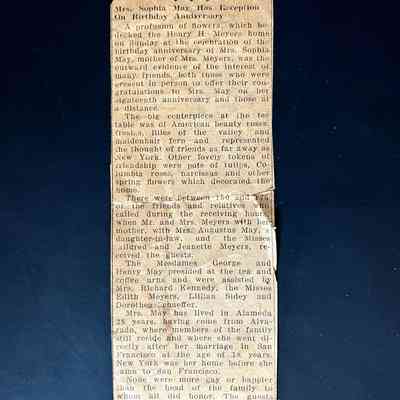 Mrs. Sophia May Has Reception
On Birthday Anniversary
A profusion of flowers, which be-
decked the Henry H. Meyers home
on Sunday at the celebration of the
birthday anniversary of Mrs. Sophia
May, mother of Mrs. Meyers, was the
outward evidence of the interest of
many friends, both those who were
present in person to offer their con-
gratulations to Mrs. May on her
eighteenth anniversary and those at
a distance.
The big centerpiece at the tea
table was of American beauty roses,
freshs, lilies of the valley and
maidenhair fern and represented
the thought of friends as far away as
New York. Other lovely tokens of
friendship were pots of tulips, Co-
lumbia roses, narcissus and other
spring flowers which decorated the
home.
There were between 150 and
of the friends and relatives
called during the receiving hours
when Mr. and Mrs. Meyers with her
mother, with Mrs. Augustus May, a
daughter-in-law, and the Misses
Mildred and Jeanette Meyers, re-
ceived the guests.
The Mesdames George and
Henry May presided at the tea and
coffee urns and were assisted by
Mrs. Richard Kennedy, the Misses
Edith Meyers, Lillian Sidey and
Dorothea
Mrs. May has lived in Alameda
28 years, having come from Alva-
rado, where members of the family
still reside and where she went di-
rectly after her marriage in San
Francisco at the age of 18 years.
New York was her home before she
came to San Francisco.
None were more gay or happier
than the head of the family to
whom all did honor. The guests